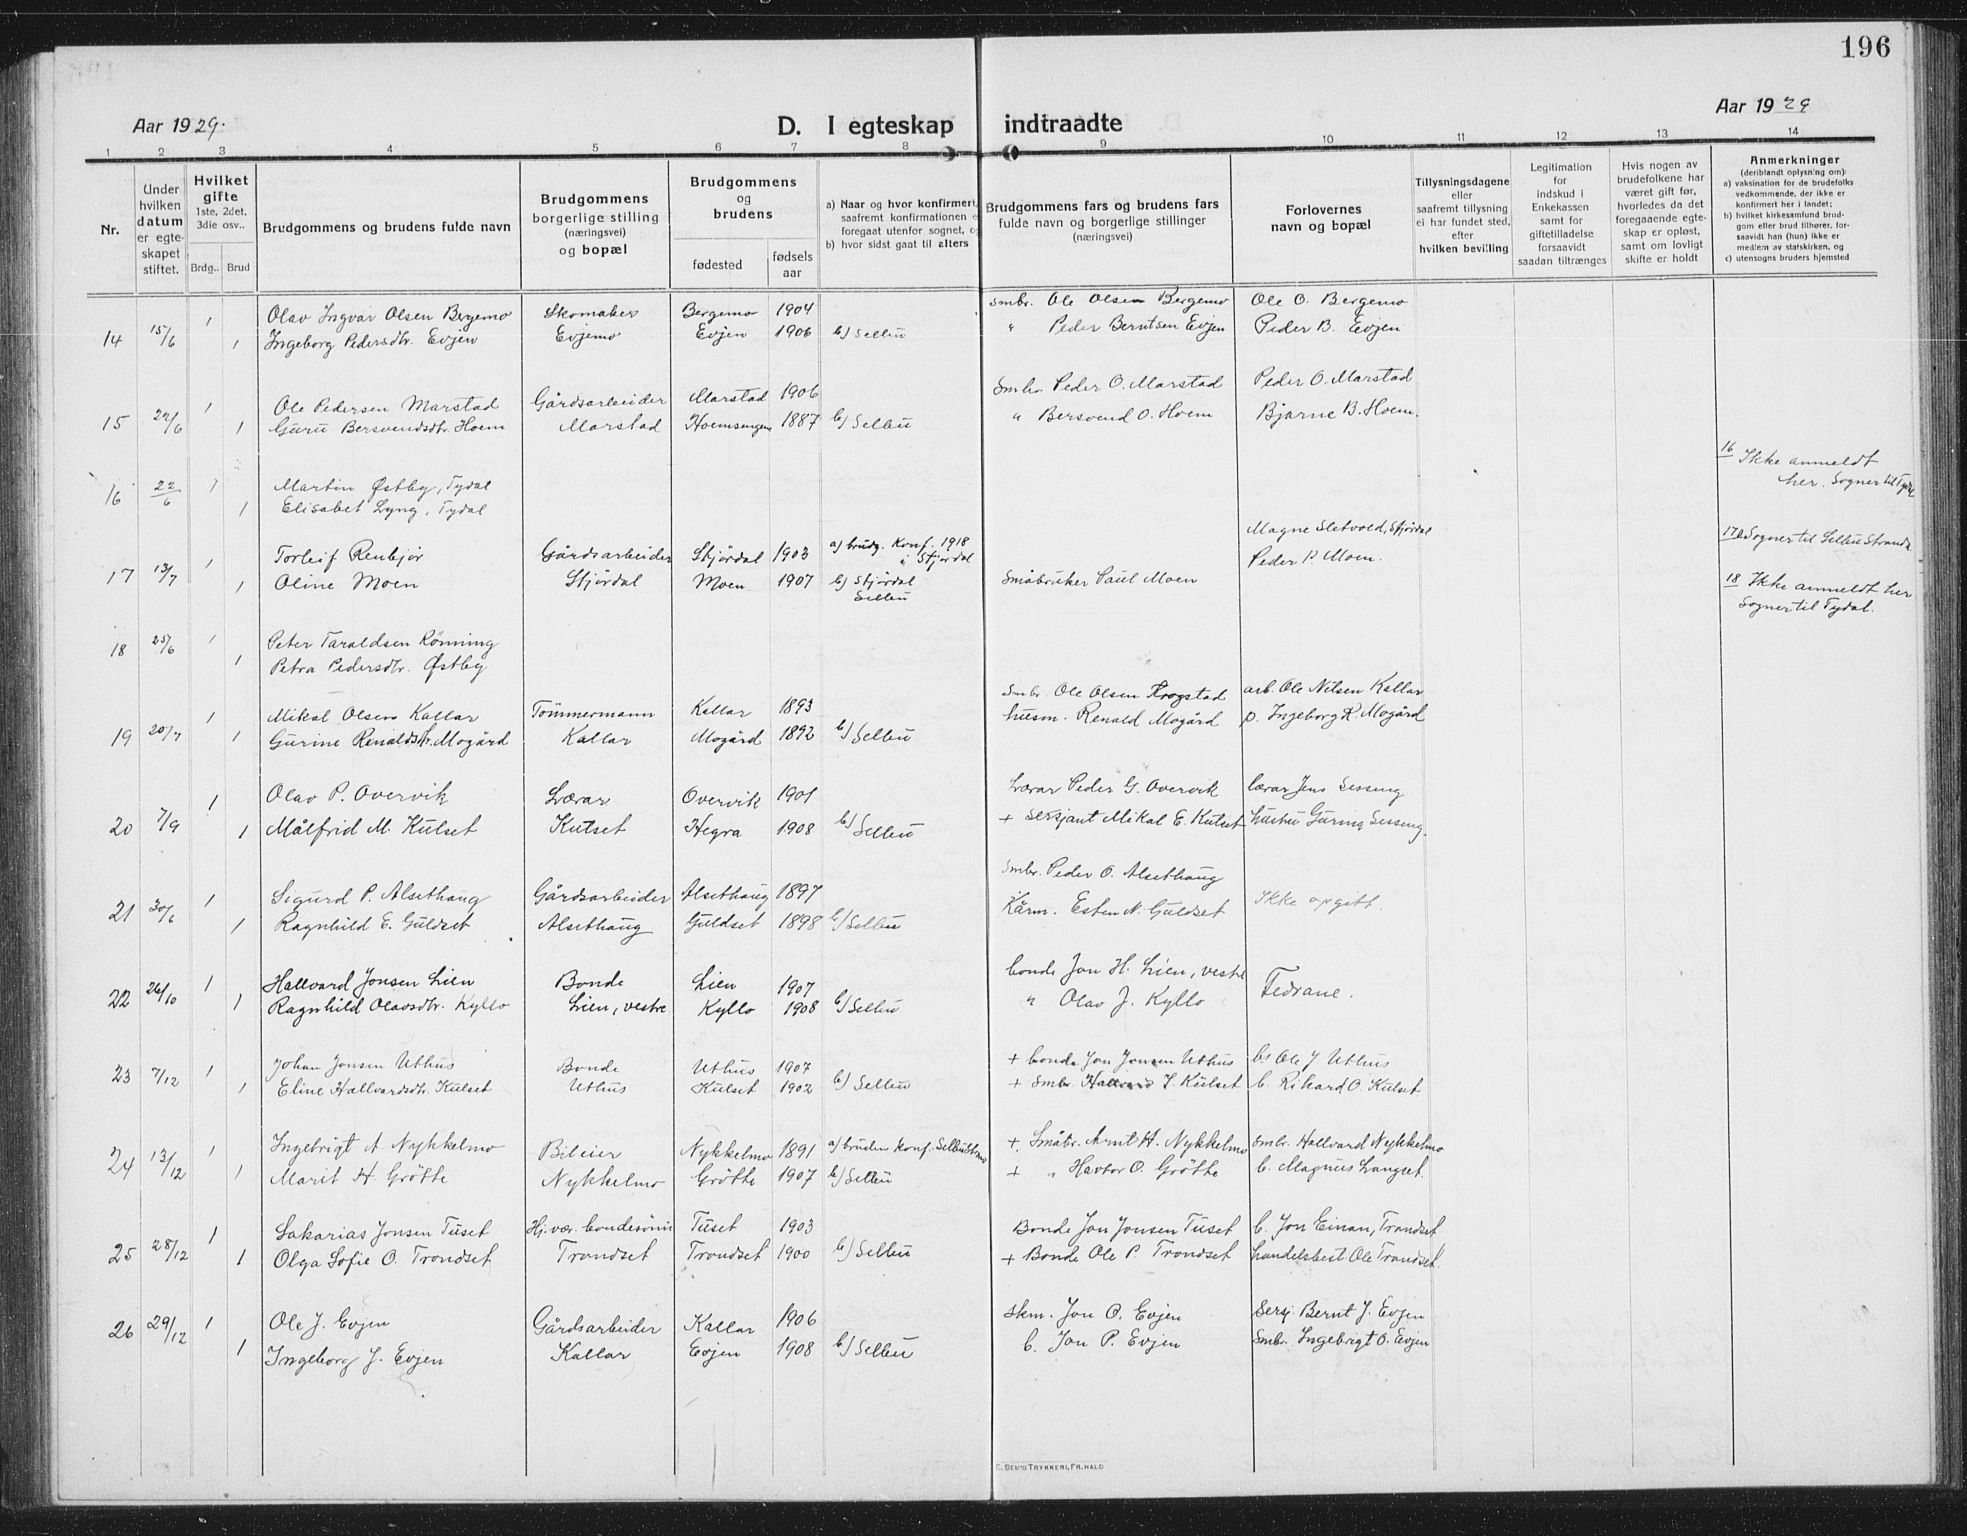 196
Aar 1929.
D. I egteskap indtraadte
Aar 1929
1 2 3 4 5 6 7 8 9 10 11 12 13 14
Nr.
Under hvilken datum er egteskapet stiftet.
Hvilket gifte
1ste, 2det, 3die osv..
Brdg.. Brud
Brudgommens og brudens fulde navn
Brudgommens borgerlige stilling (næringsvei) og bopæl
Brudgommens og brudens
fødested
fødsels aar
a) Naar og hvor konfirmert,
saafremt konfirmationen e
foregaat utenfor sognet, o
b) hvor sidst gaat til alters
Brudgommens fars og brudens fars
fulde navn og borgerlige stillinger
(næringsvei)
Forlovernes
navn og bopæl
Tillysningsdagene
eller
saafremt tillysning
ei har fundet sted,
efter
hvilken bevilling
Legitimation
for
indskud i
Enkekassen
samt for
giftetilladelse
forsaavidt
saadan tiltrænges
Hvis nogen av
brudefolkene har
været gift før,
hvorledes da det
foregaaende egte-
skap er opløst,
samt om lovligt
skifte er holdt
Anmerkninger
(deriblandt oplysning om):
a) vaksination for de brudefolks
vedkommende, der ikke er
konfirmert her i landet;
b) hvilket kirkesamfund brud-
gom eller brud tilhører, for-
saavidt han (hun) ikke er
medlem av statskirken, og
c) utensogns bruders hjemsted
14 15/6 1 Olav Ingvar Olsen Bergemo Skomaker Bergemo 1904 smbr. Ole Olsen Bergemo Ole O. Bergemo
1 Ingeborg Pedersdtr. Evjen Evjemo Evjen 1906 b) Selbu " Peder Berntsen Evjen Peder B. Evjen
15 22/6 1 Ole Pedersen Marstad Gårdsarbeider Marstad 1906 Smbr. Peder O. Marstad Peder O. Marstad
1 Guru Bersvendsdtr. Hoem Marstad 1887 b) Selbu " Bersvend O. Hoem Bjarne B. Hoem.
16 22/6 1 Martin Østby, Tydal 16 Ikke anmeldt
1 Elisabet Lyng, Tydal her. Sogner til Tydal
17 13/7 1 Torleif Renbjør Gårdsarbeider Stjørdal 1903 a) brudg. Konf. 1918 i Stjørdal Magne Sletvold, Stjørdal 17 Sogner til Selbustrand
1 Oline Moen Stjördal Moen 1907 b) Stjørdal Selbu Småbruker Paul Moen Peder P. Moen.
18 Ikke anmeldt her
Sogner til Tydal.
18 25/6 1 Peter Taraldsen Rönning
1 Petra Pedersdtr. Østby
19 20/7 1 Mikal Olsen Kallar Tömmermann Kallar 1893 Smbr. Ole Olsen Krogstad arb. Ole Nilsen Kallar
1 Gurine Renaldsdtr. Mogård Kallar Mogård 1892 b) Selbu husm. Renald Mogård p. Ingeborg R. Mogård
20 7/9 1 Olav P. Overvik Lærar Overvik 1901 Lærar Peder G. Overvik lærar Jens Sesseng
1 Målfrid M. Kulset Kulset Hegra 1908 b) Selbu + Sersjant Mikal E. Kulset hustru Gurina Sesseng.
21 30/6 1 Sigurd P. Alsethaug Gårdsarbeider Alsethaug 1897 Smbr. Peder O. Alsethaug Ikke opgitt.
1 Ragnhild E. Guldset Alsethaug Guldset 1898 b) Selbu Kårm. Esten N. Guldset
22 26/10 1 Hallvard Jonsen Lien Bonde Lien 1907 bonde Jon H. Lien, vestre Fedrane.
1 Ragnhild Olavsdtr. Kyllo Lien, vestre Kyllo 1908 b) Selbu " Olav J. Kyllo
23 7/12 1 Johan Jonsen Uthus Bonde Uthus 1907 + bonde Jon Jonsen Uthus Ole J Uthus
1 Eline Hallvardsdtr. Kulset Uthus Kulset 1902 b) Selbu + Smbr. Hallvard J. Kulset b. Rikard O. Kulset.
24 13/12 1 Ingebrigt A. Nykkelmo Bileier Nykkelmo 1891 a) bruden konf. + Småbr. Arnt H. Nykkelmo Smbr. Hallvard Nykkelmo
1 Marit H. Grötte Nykkelmo Grötte 1907 b) Selbu + " Havtor O. Grötte b. Magnus Langset.
25 28/12 1 Sakarias Jonsen Tuset Hj. vær. bondesönn Tuset 1903 Bonde Jon Jonsen Tuset b. Jon Einan, Trondset
1 Olga Sofie O. Trondset Trondset Trondset 1900 b) Selbu + Bonde Ole P. Trondset handelsbest Ole Trondset.
26 29/12 1 Ole J. Evjen Gårdsarbeider Kallar 1906 Skm. Jon O. Evjen Sersj Bernt J. Evjen
1 Ingeborg J. Evjen Kallar Evjen 1908 b) Selbu b. Jon P. Evjen Smbr. Ingebrigt O. Evjen
E. SEM'S TRYKKERI, FR.HALD